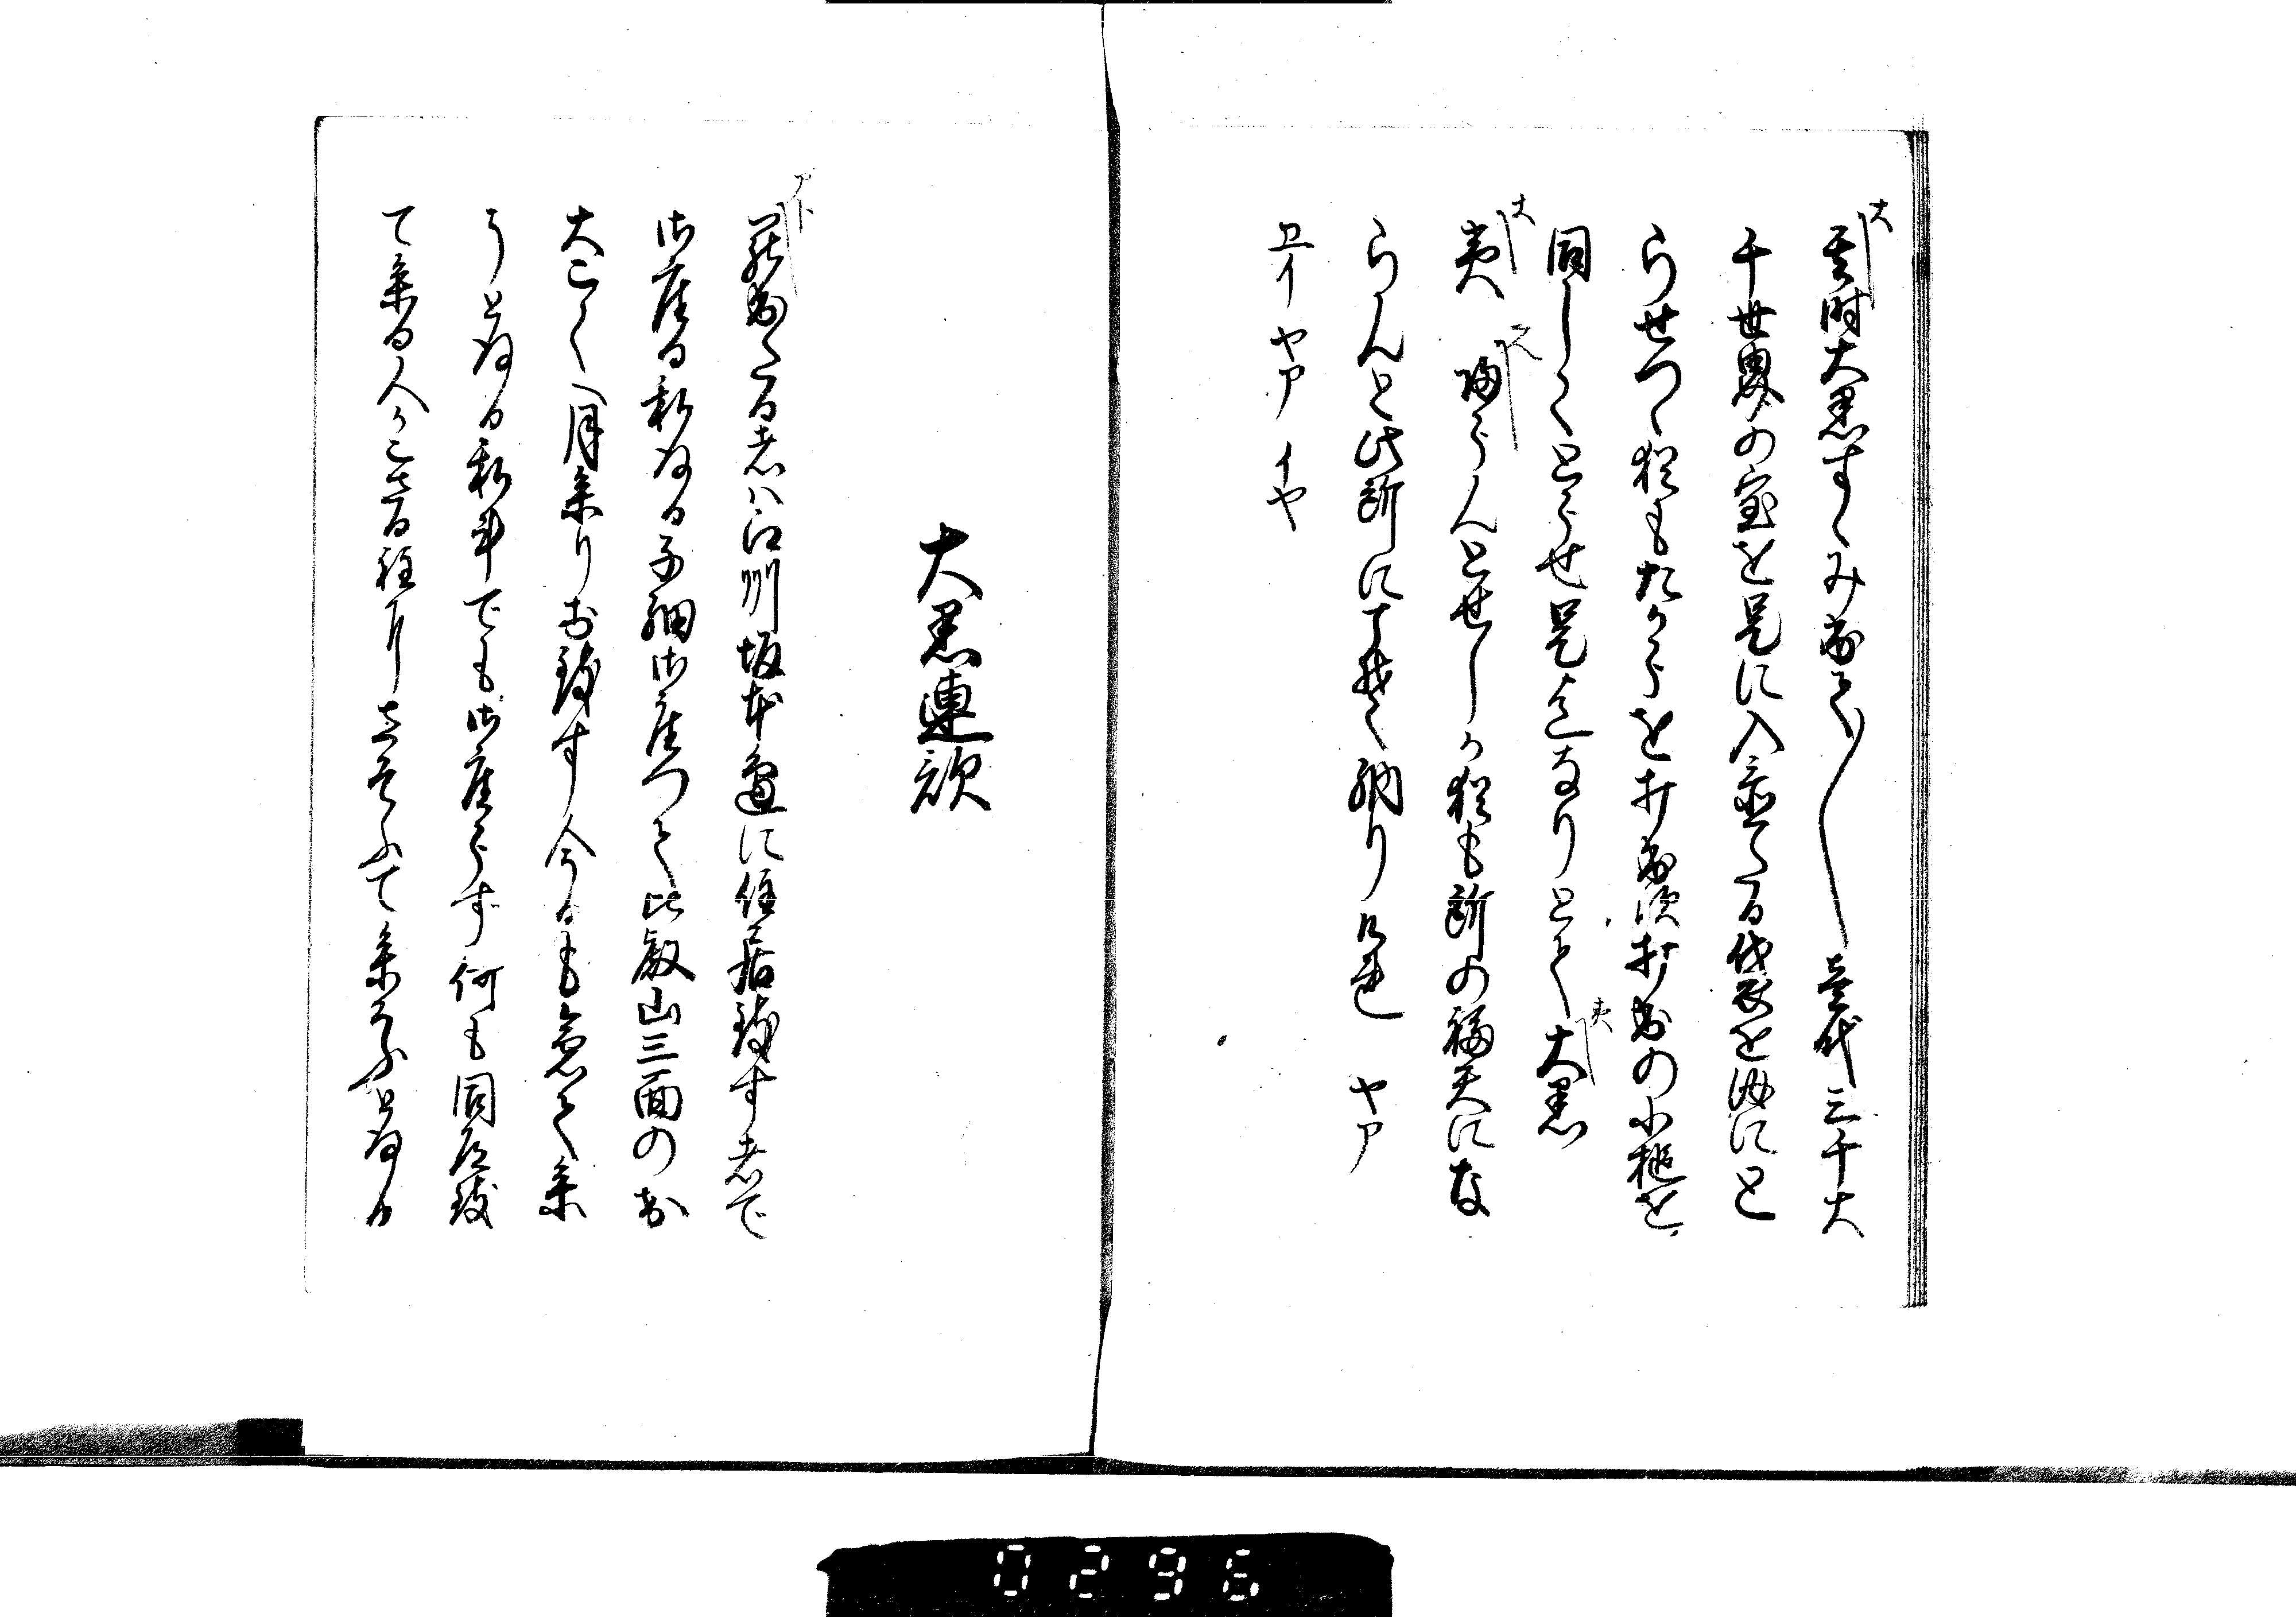 大
其時大黒すゝみ出て〳〵 三千大
千世界の宝を是に入置たる袋を汝にと
らせつゝ猶もたからを打出須打出の小槌を
同しくとらせ是迄なりとて
夷
大黒
大
夷
帰らんとせしか猶も所の福天にな
らんと此所にこそ納り ヤア
ヱイヤア イヤ
大黒連歌
アト
罷出たる者ハ江州坂本邉に住居致す者で
御座る私なる子細御座つて比叡山三面のお
大こくへ月参りお致す今日も急て参
うと存る私斗でも御座らず何も同道致
て参る人かこさる程に立寄ふて参ふと存る
0296